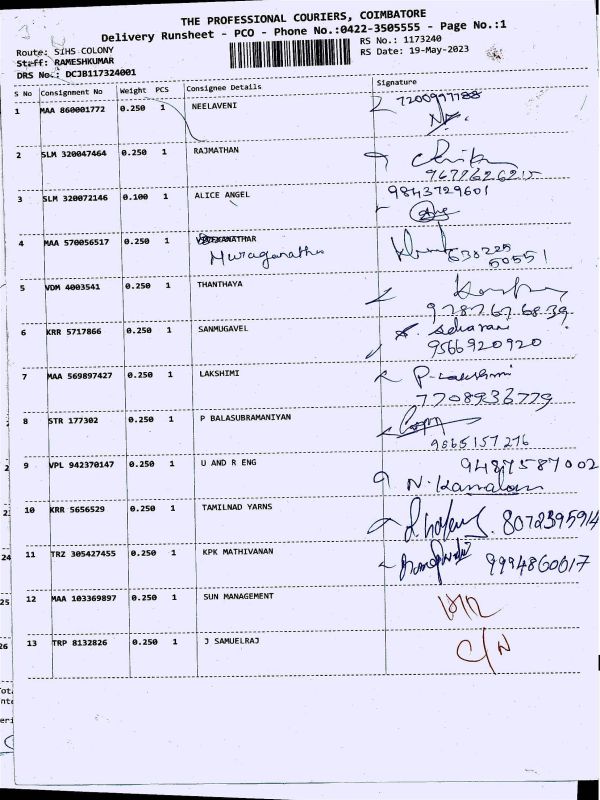 THE PROFESSIONAL COURIERS, COIMBATORE
Delivery Runsheet - PCO - Phone No.:0422-3505555 - Page No.:1
Route: SIHS COLONY
RS No.: 1173240
Staff: RAMESHKUMAR
RS Date: 19-May-2023
DRS No.: DCJB117324001
S No Consignment No Weight PCS Consignee Details Signature
1 MAA 860001772 0.250 1 NEELAVENI
2 SLM 320047464 0.250 1 RAJMATHAN
3 SLM 320072146 0.100 1 ALICE ANGEL 9843729601
4 MAA 570056517 0.250 1
Muraganathan
630225
50551
5 VDM 4003541 0.250 1 THANTHAYA
9787676839
6 KRR 5717866 0.250 1 SANMUGAVEL
9566920920
7 MAA 569897427 0.250 1 LAKSHIMI P-Lakshmi
7708936779
8 STR 177302 0.250 1 P BALASUBRAMANIYAN
9865157276
9 VPL 942370147 0.250 1 U AND R ENG 9487587002
10 KRR 5656529 0.250 1 TAMILNAD YARNS 8072395914
11 TRZ 305427455 0.250 1 KPK MATHIVANAN 9994860617
12 MAA 103369897 0.250 1 SUN MANAGEMENT
13 TRP 8132826 0.250 1 J SAMUELRAJ C/N
24
25
26